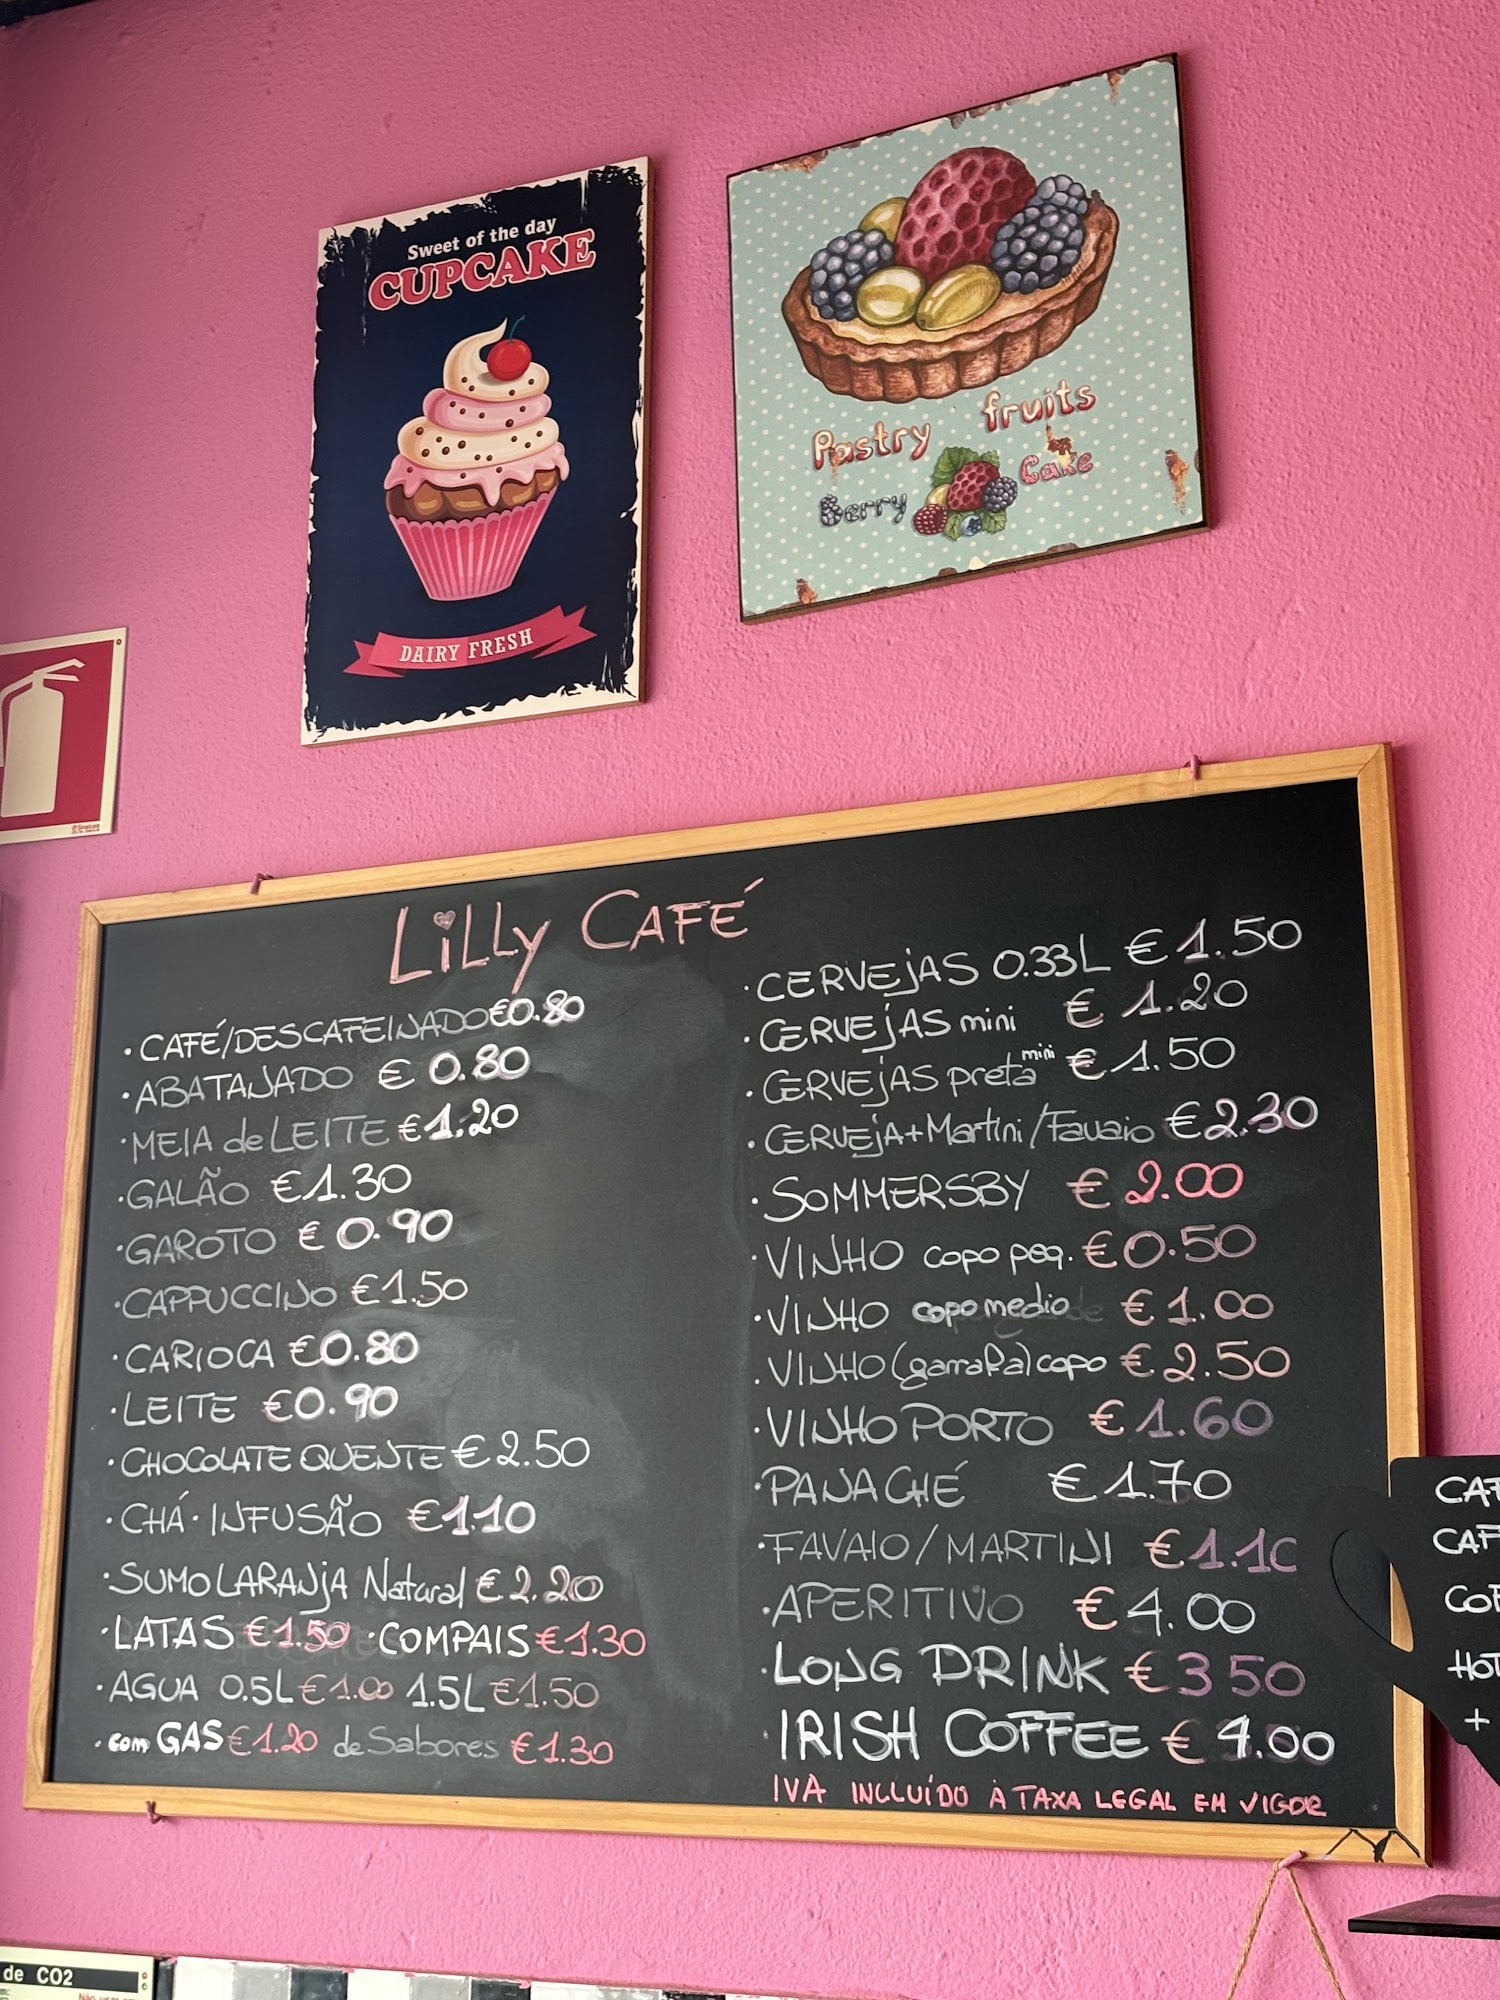 Sweet of the day
CUPCAKE
DAIRY FRESH
Pastry fruits
Berry Cake
LiLLy CAFÉ
· CAFÉ/DESCAFEINADO €0.80
· ABATANADO € 0.80
· MEIA de LEITE €1.20
· GALÃO €1.30
· GAROTO € 0.90
· CAPPUCCINO €1.50
· CARIOCA €0.80
· LEITE €0.90
· CHOCOLATE QUENTE € 2.50
· CHÁ · INFUSÃO €1.10
· SUMO LARANjA Natural € 2.20
· LATAS €1.50 · COMPAIS €1.30
· AGUA 0.5L €1.00 1.5L €1.50
· com GAS €1.20 de Sabores €1.30
· CERVEjAS 0.33L € 1.50
· CERVEjAS mini € 1.20
· CERVEjAS preta mini € 1.50
· CERVEjA+Martini/Favaio € 2.30
· SOMMERSBY € 2.00
· VINHO copo peq. € 0.50
· VINHO copo medio € 1.00
· VINHO (garrafa) copo € 2.50
· VINHO PORTO € 1.60
· PANACHÉ € 1.70
· FAVAIO / MARTINI € 1.10
· APERITIVO € 4.00
· LONG DRINK € 3 50
· IRISH COFFEE € 4.00
IVA INCLUÍDO À TAXA LEGAL EM VIGOR
CAF
CAF
COF
HOT
+
de CO2